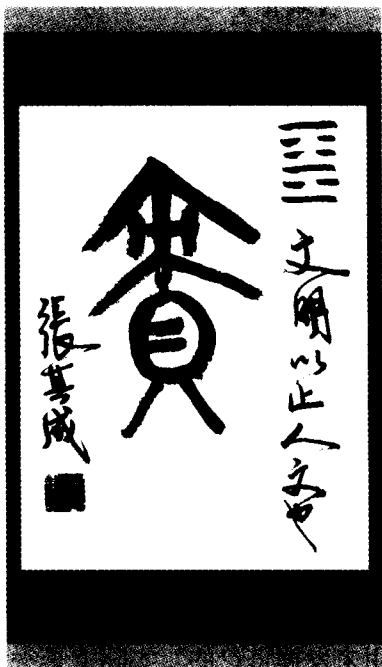 文明以止人文也
賁
張其成